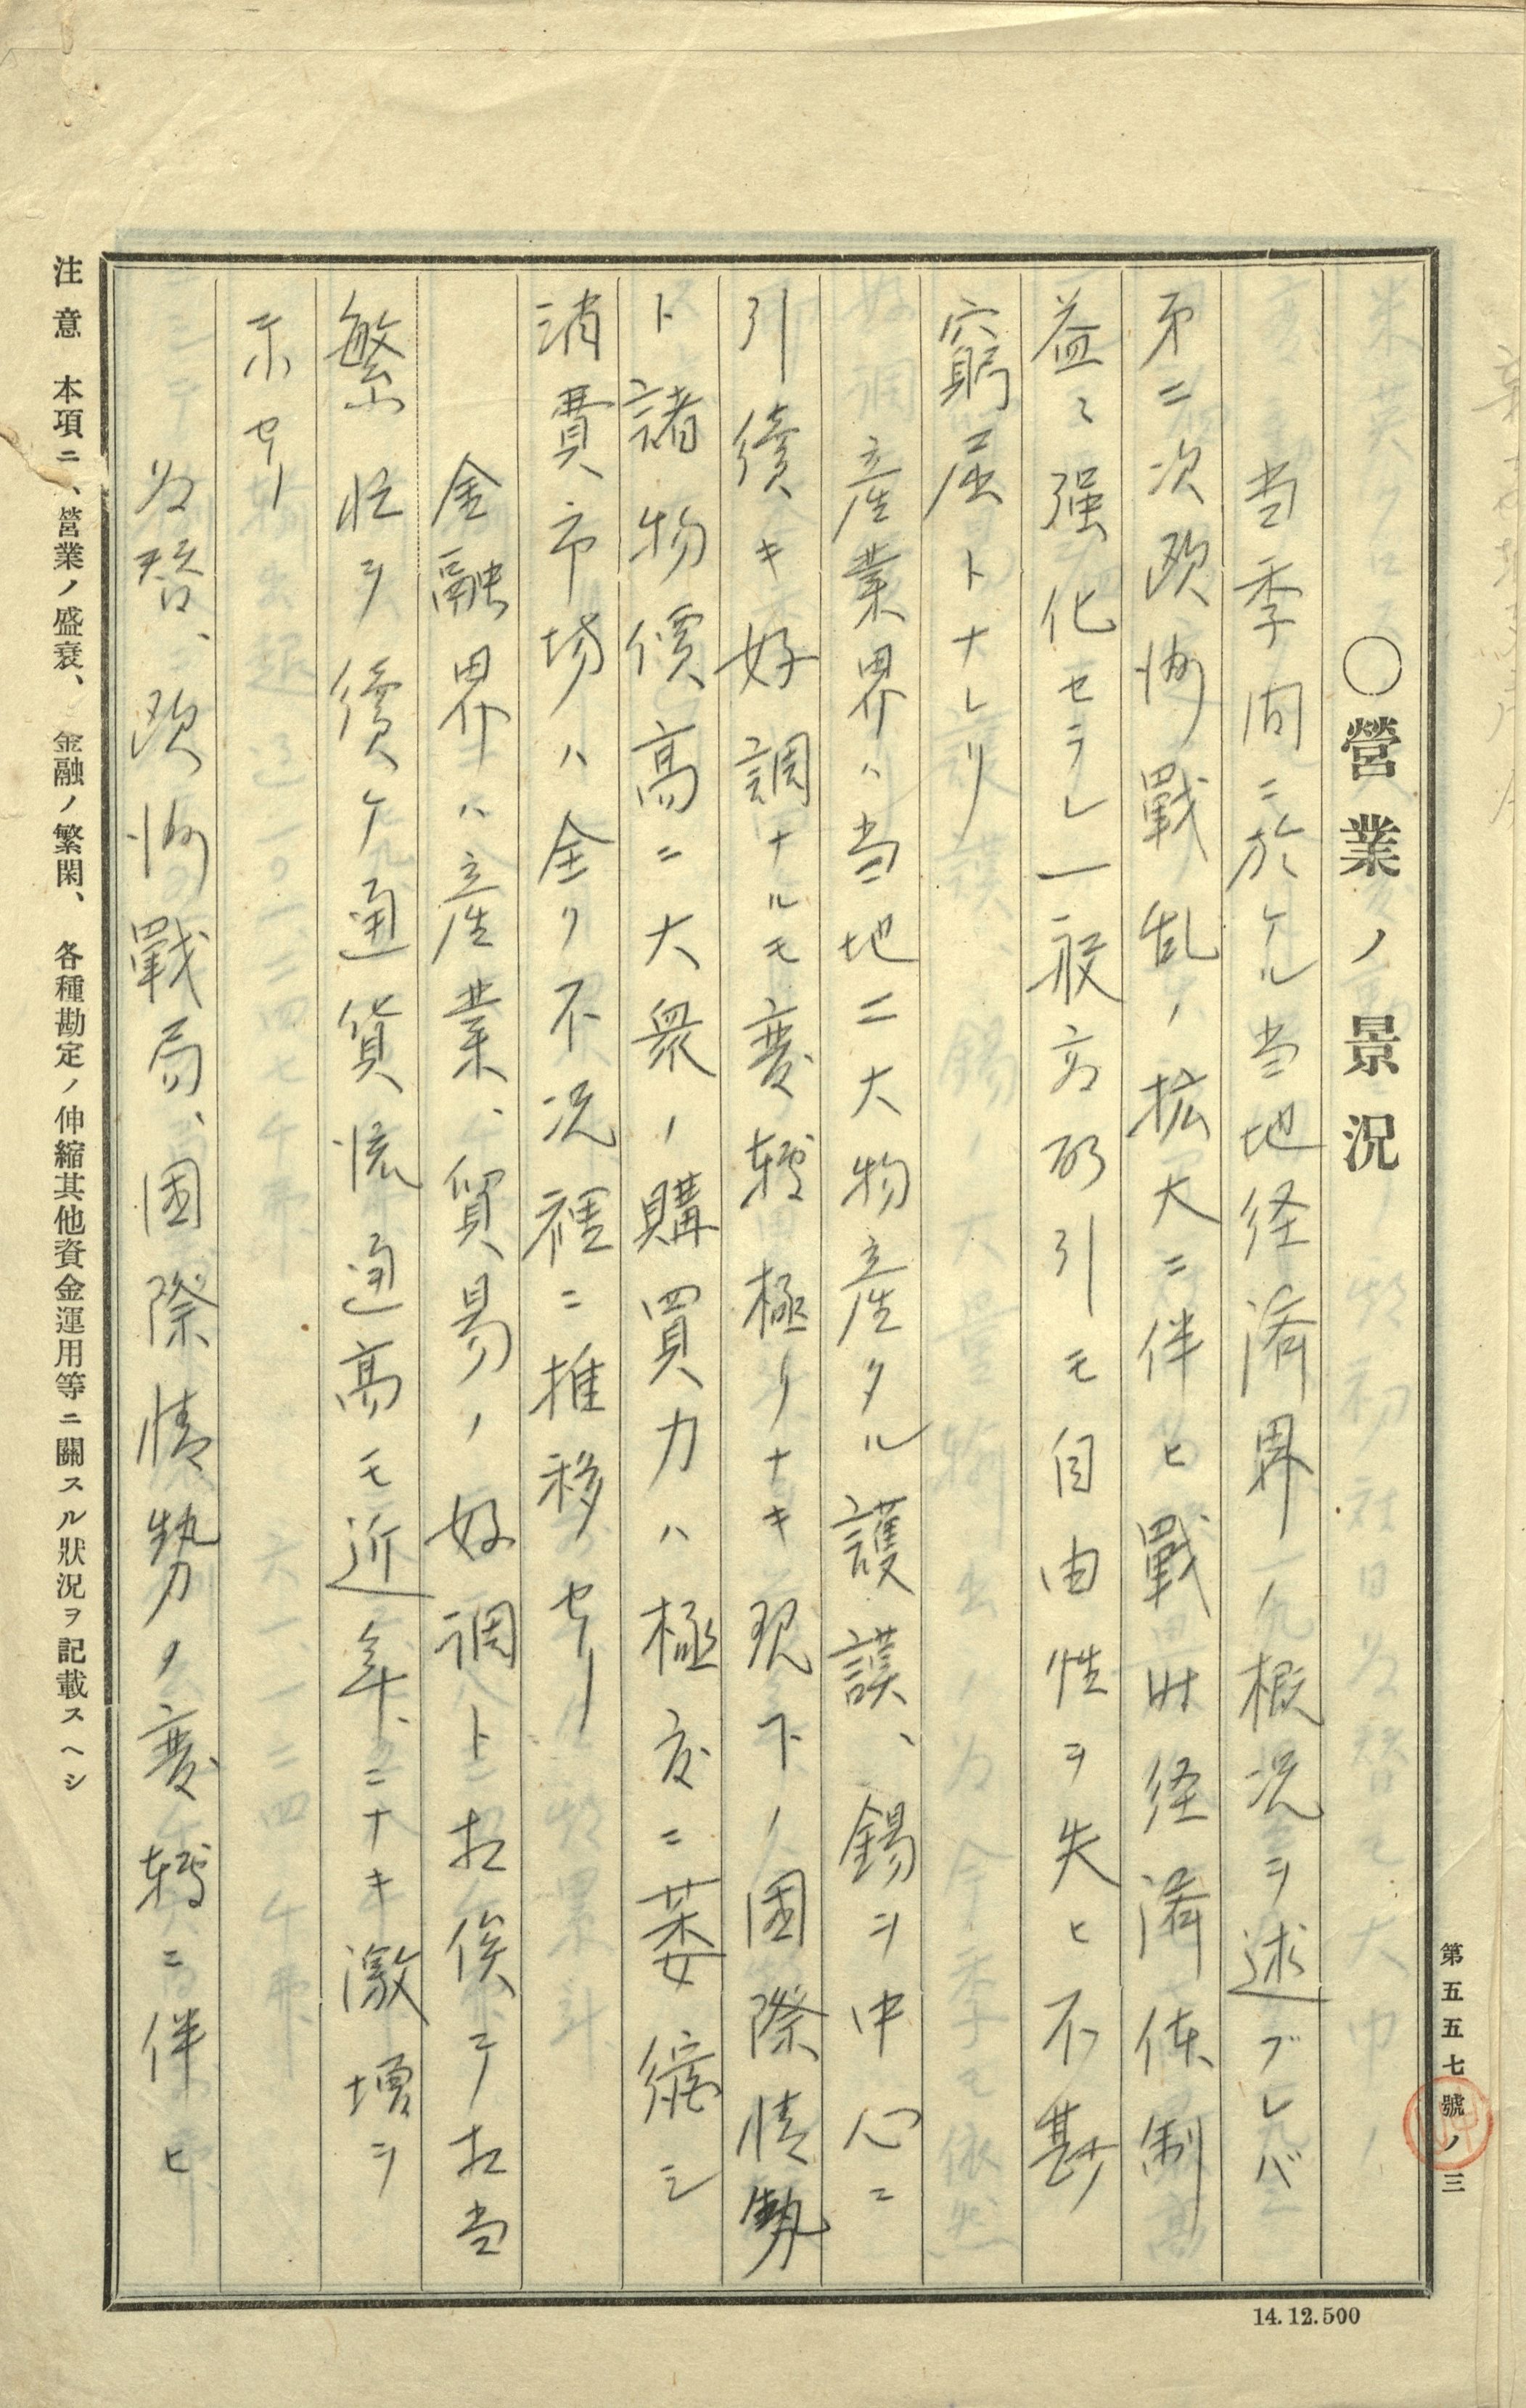 第五五七號ノ三
○營業ノ景況
当季间ニ於ケル当地経済界ノ概況ヲ述ブレバ
第二次欧洲戰乱ノ拡大ニ伴ヒ戰时経済体制
益〻强化セラレ一般
取引モ自由性ヲ失ヒ不尠
窮屈トナレリ
産業界ハ当地二大物産タル護謨、錫ヲ中心ニ
引續キ好調ナルモ変轉極リナキ現下ノ国際情勢
ト諸物價高ニ大衆ノ購買力ハ極度ニ萎縮シ
消費市場ハ全ク不況裡ニ推移セリ
金融界ハ産業、貿易ノ好調ト相俟テ相当
繁忙ヲ續ケ通貨流通高モ近年ニナキ激増ヲ
示セリ
為替、欧洲戰局、国際情勢ノ変轉ニ伴ヒ
注意 本項ニ、營業ノ盛衰、金融ノ繁閑、各種勘定ノ伸縮其他資金運用等ニ關スル狀況ヲ記載スヘシ
14.12.500